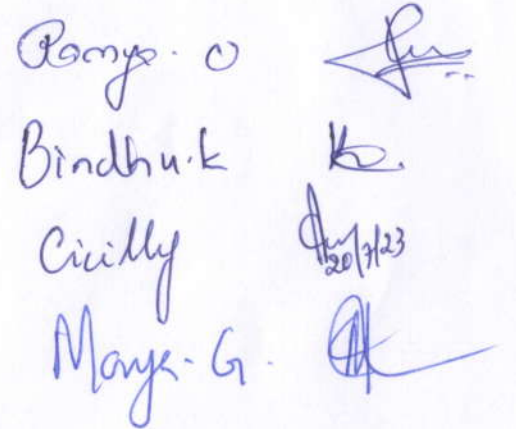 Ramya. O
Bindhu.k
Cicilly 20/7/23
Manya. G.